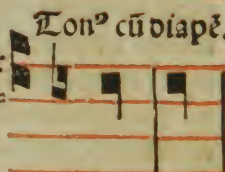 Tonꝰ cū diapē.